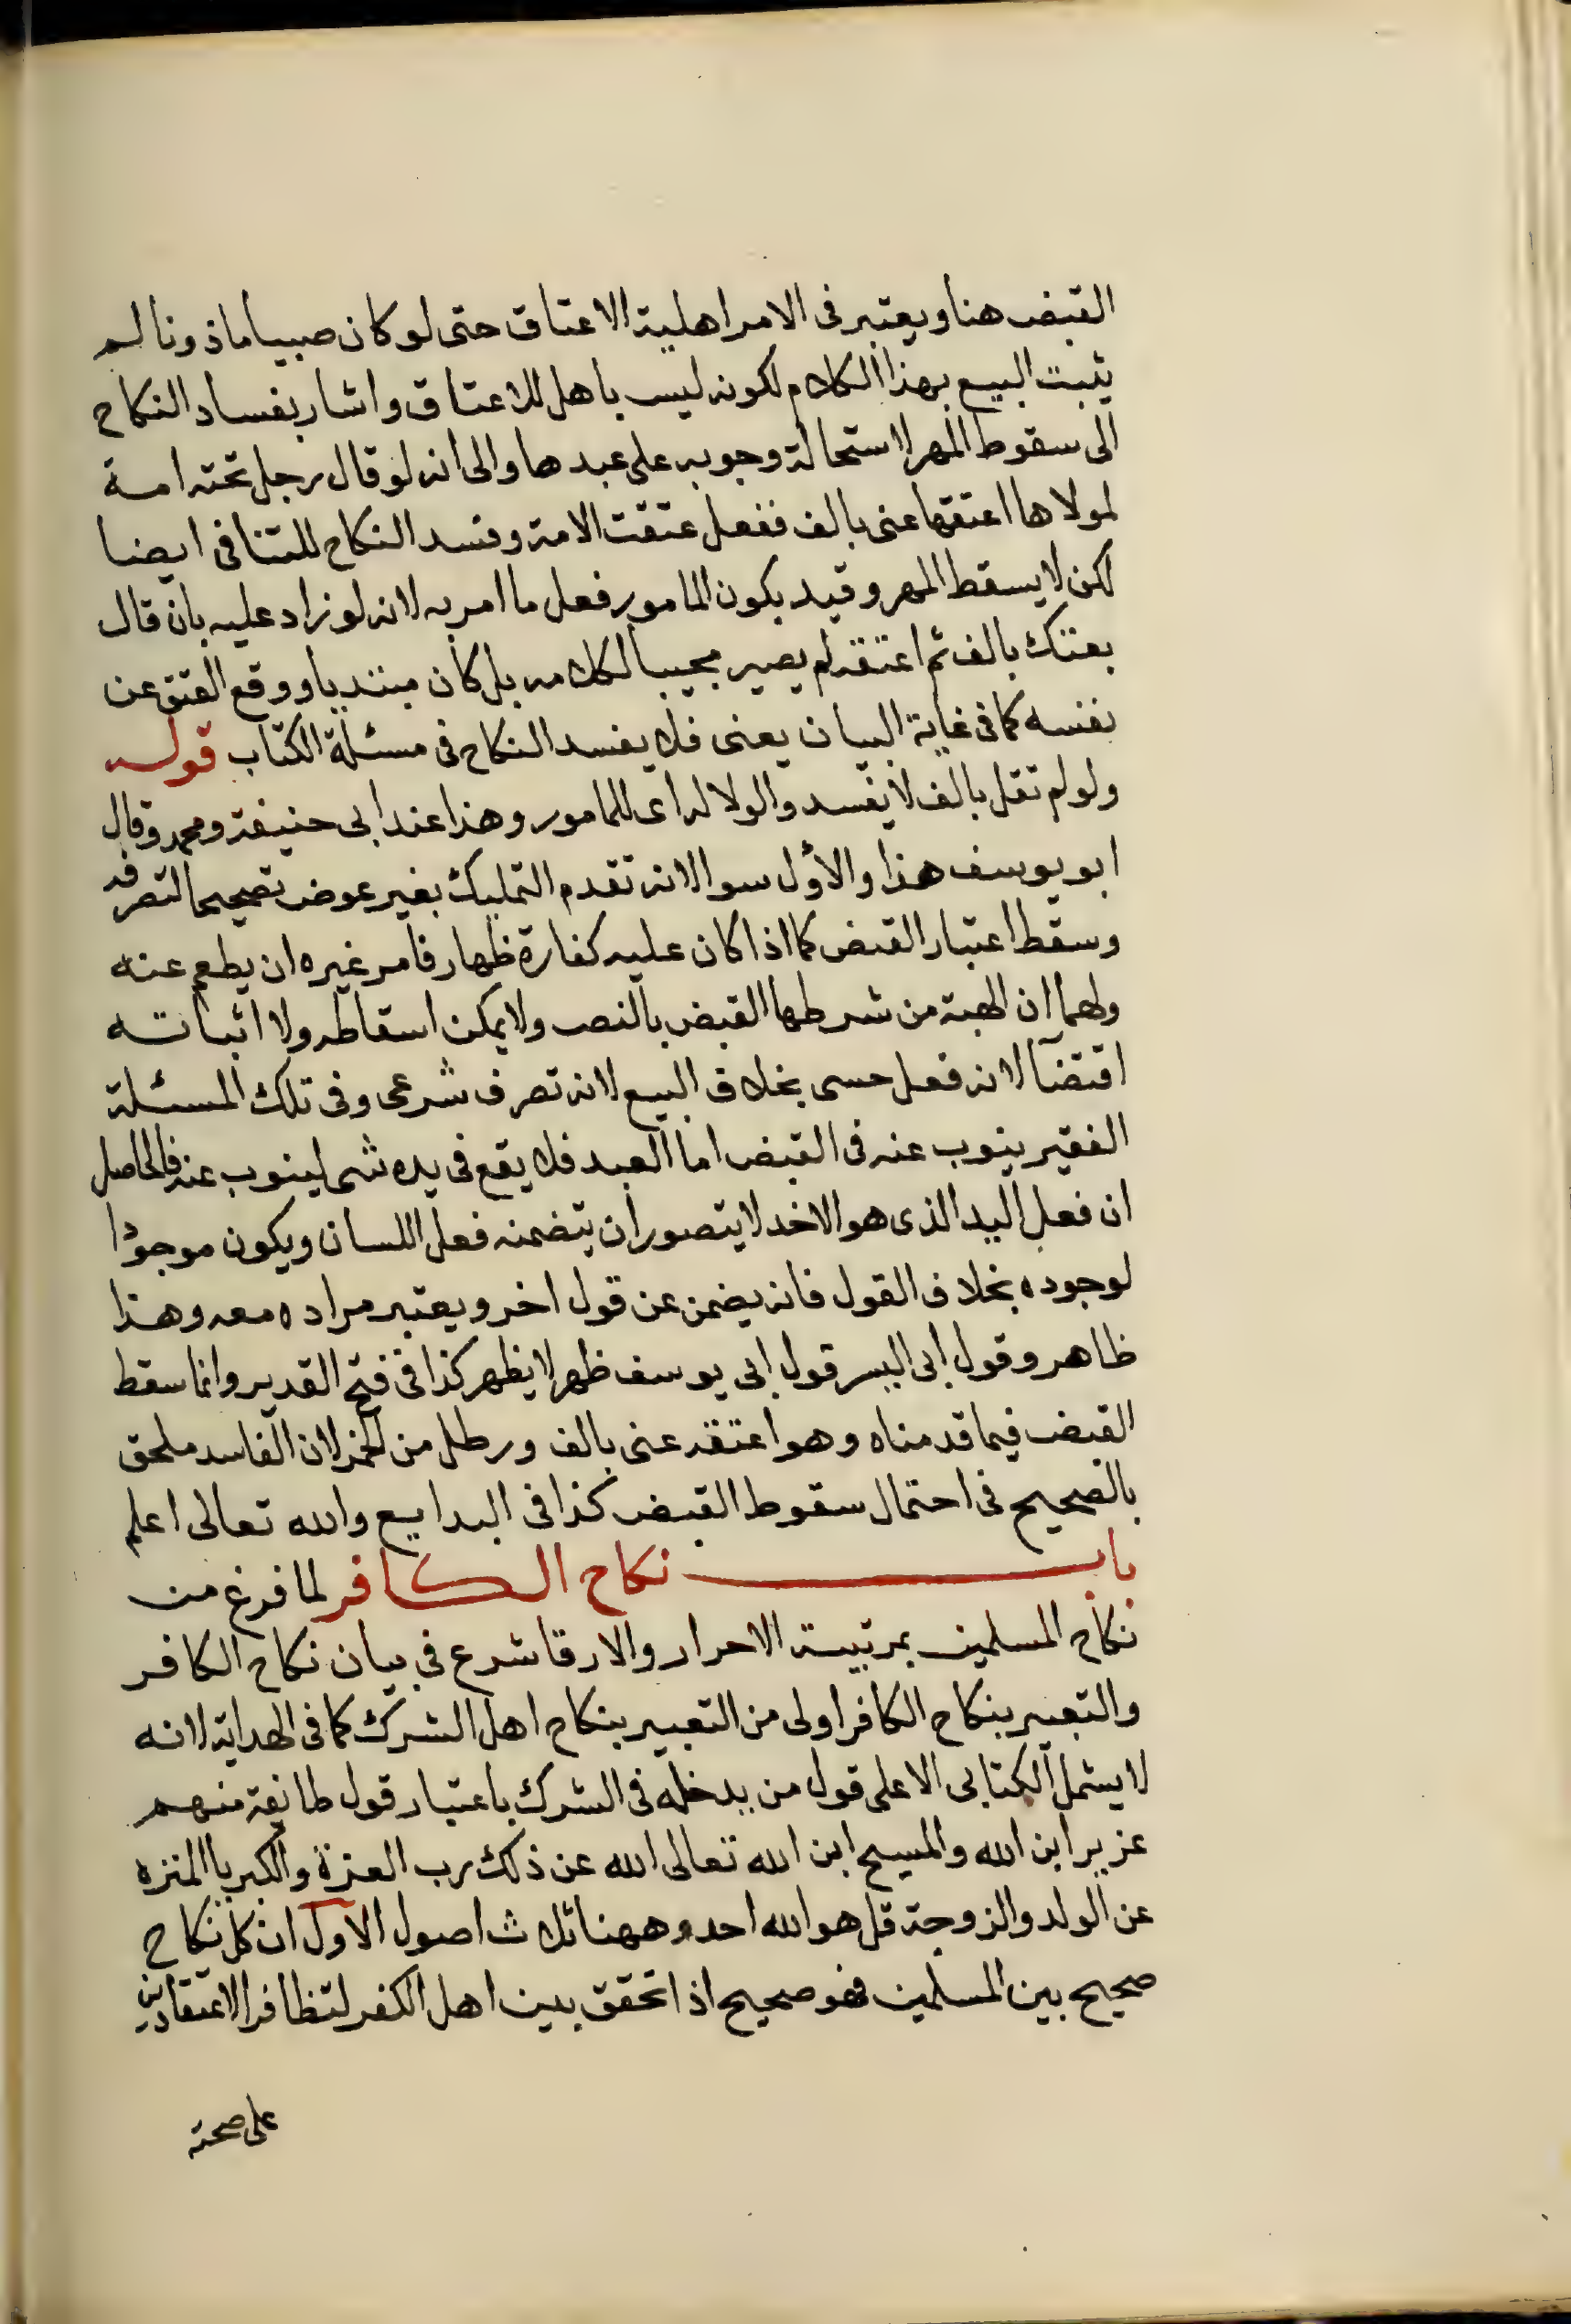 القبض هنا ويعتبر فى الامر اهلية الاعتاق حتى لو كان صبيا ماذونا لم
يثبت البيع بهذا الكلام لكونه ليس باهل للاعتاق واشار بفساد النكاح
الى سقوط المهر لاستحالة وجوبه على عبدها والى انه لو قال رجل تحته امة
لمولاها اعتقها عنى بالف ففعل عتقت الامة وفسد النكاح للتنافى ايضا
لكن لا يسقط المهر وقيد بكون المامور فعل ما امر به لانه لو زاد عليه بان قال
بعتك بالف ثم اعتقته لم يصير مجيبا لكلامه بل كان مبتديا ووقع العتق عن
نفسه كما فى غاية البيان يعنى فلا يفسد النكاح فى مسئلة الكتاب قوله
ولو لم تقل بالف لا يفسد والولا له اى للمامور وهذا عند ابى حنيفة ومحمد وقال
ابو يوسف هذا والاول سوا لانه تقدم التمليك بغير عوض تصحيحا لتصرفه
وسقط اعتبار القبض كما اذا كان عليه كفارة ظهار فامر غيره ان يطعم عنه
ولهما ان الهبة من شرطها القبض بالنص ولا يمكن اسقاطه ولا اثباته
اقتضآ لانه فعل حسى بخلاف البيع لانه تصرف شرعى وفى تلك المسئلة
الفقير ينوب عنه فى القبض اما العبد فلا يقع فى يده شى لينوب عنه فالحاصل
ان فعل اليد الذى هو الاخد لا يتصور ان يتضمنه فعل اللسان ويكون موجودا
لوجوده بخلاف القول فانه يضمن عن قول اخر ويعتبر مراده معه وهذا
ظاهر وقول ابى اليسر قول ابى يوسف ظهر لا يظهر كذا فى فتح القدير وانما سقط
القبض فيما قدمناه وهو اعتقه عنى بالف ورطل من الخمر لان الفاسد ملحق
بالصحيح فى احتمال سقوط القبض كذا فى البدايع والله تعالى اعلم
باب نكاح الكافر لما فرغ من
نكاح المسلمين بمرتبيته الاحرار والارقا شرع فى بيان نكاح الكافر
والتعبير بنكاح الكافر اولى من التعبير بنكاح اهل الشرك كما فى الهداية لانه
لا يشمل الكتابى الا على قول من يدخله فى الشرك باعتبار قول طائفة منهم
عزير ابن الله والمسيح ابن الله تعالى الله عن ذلك رب العزة والكبريا المنزه
عن الولد والزوجة قل هو الله احد وههنا ثلاث اصول الاول ان كل نكاح
صحيح بين المسلمين فهو صحيح اذا تحقق بين اهل الكفر لتظافر الاعتقادين
على صحته